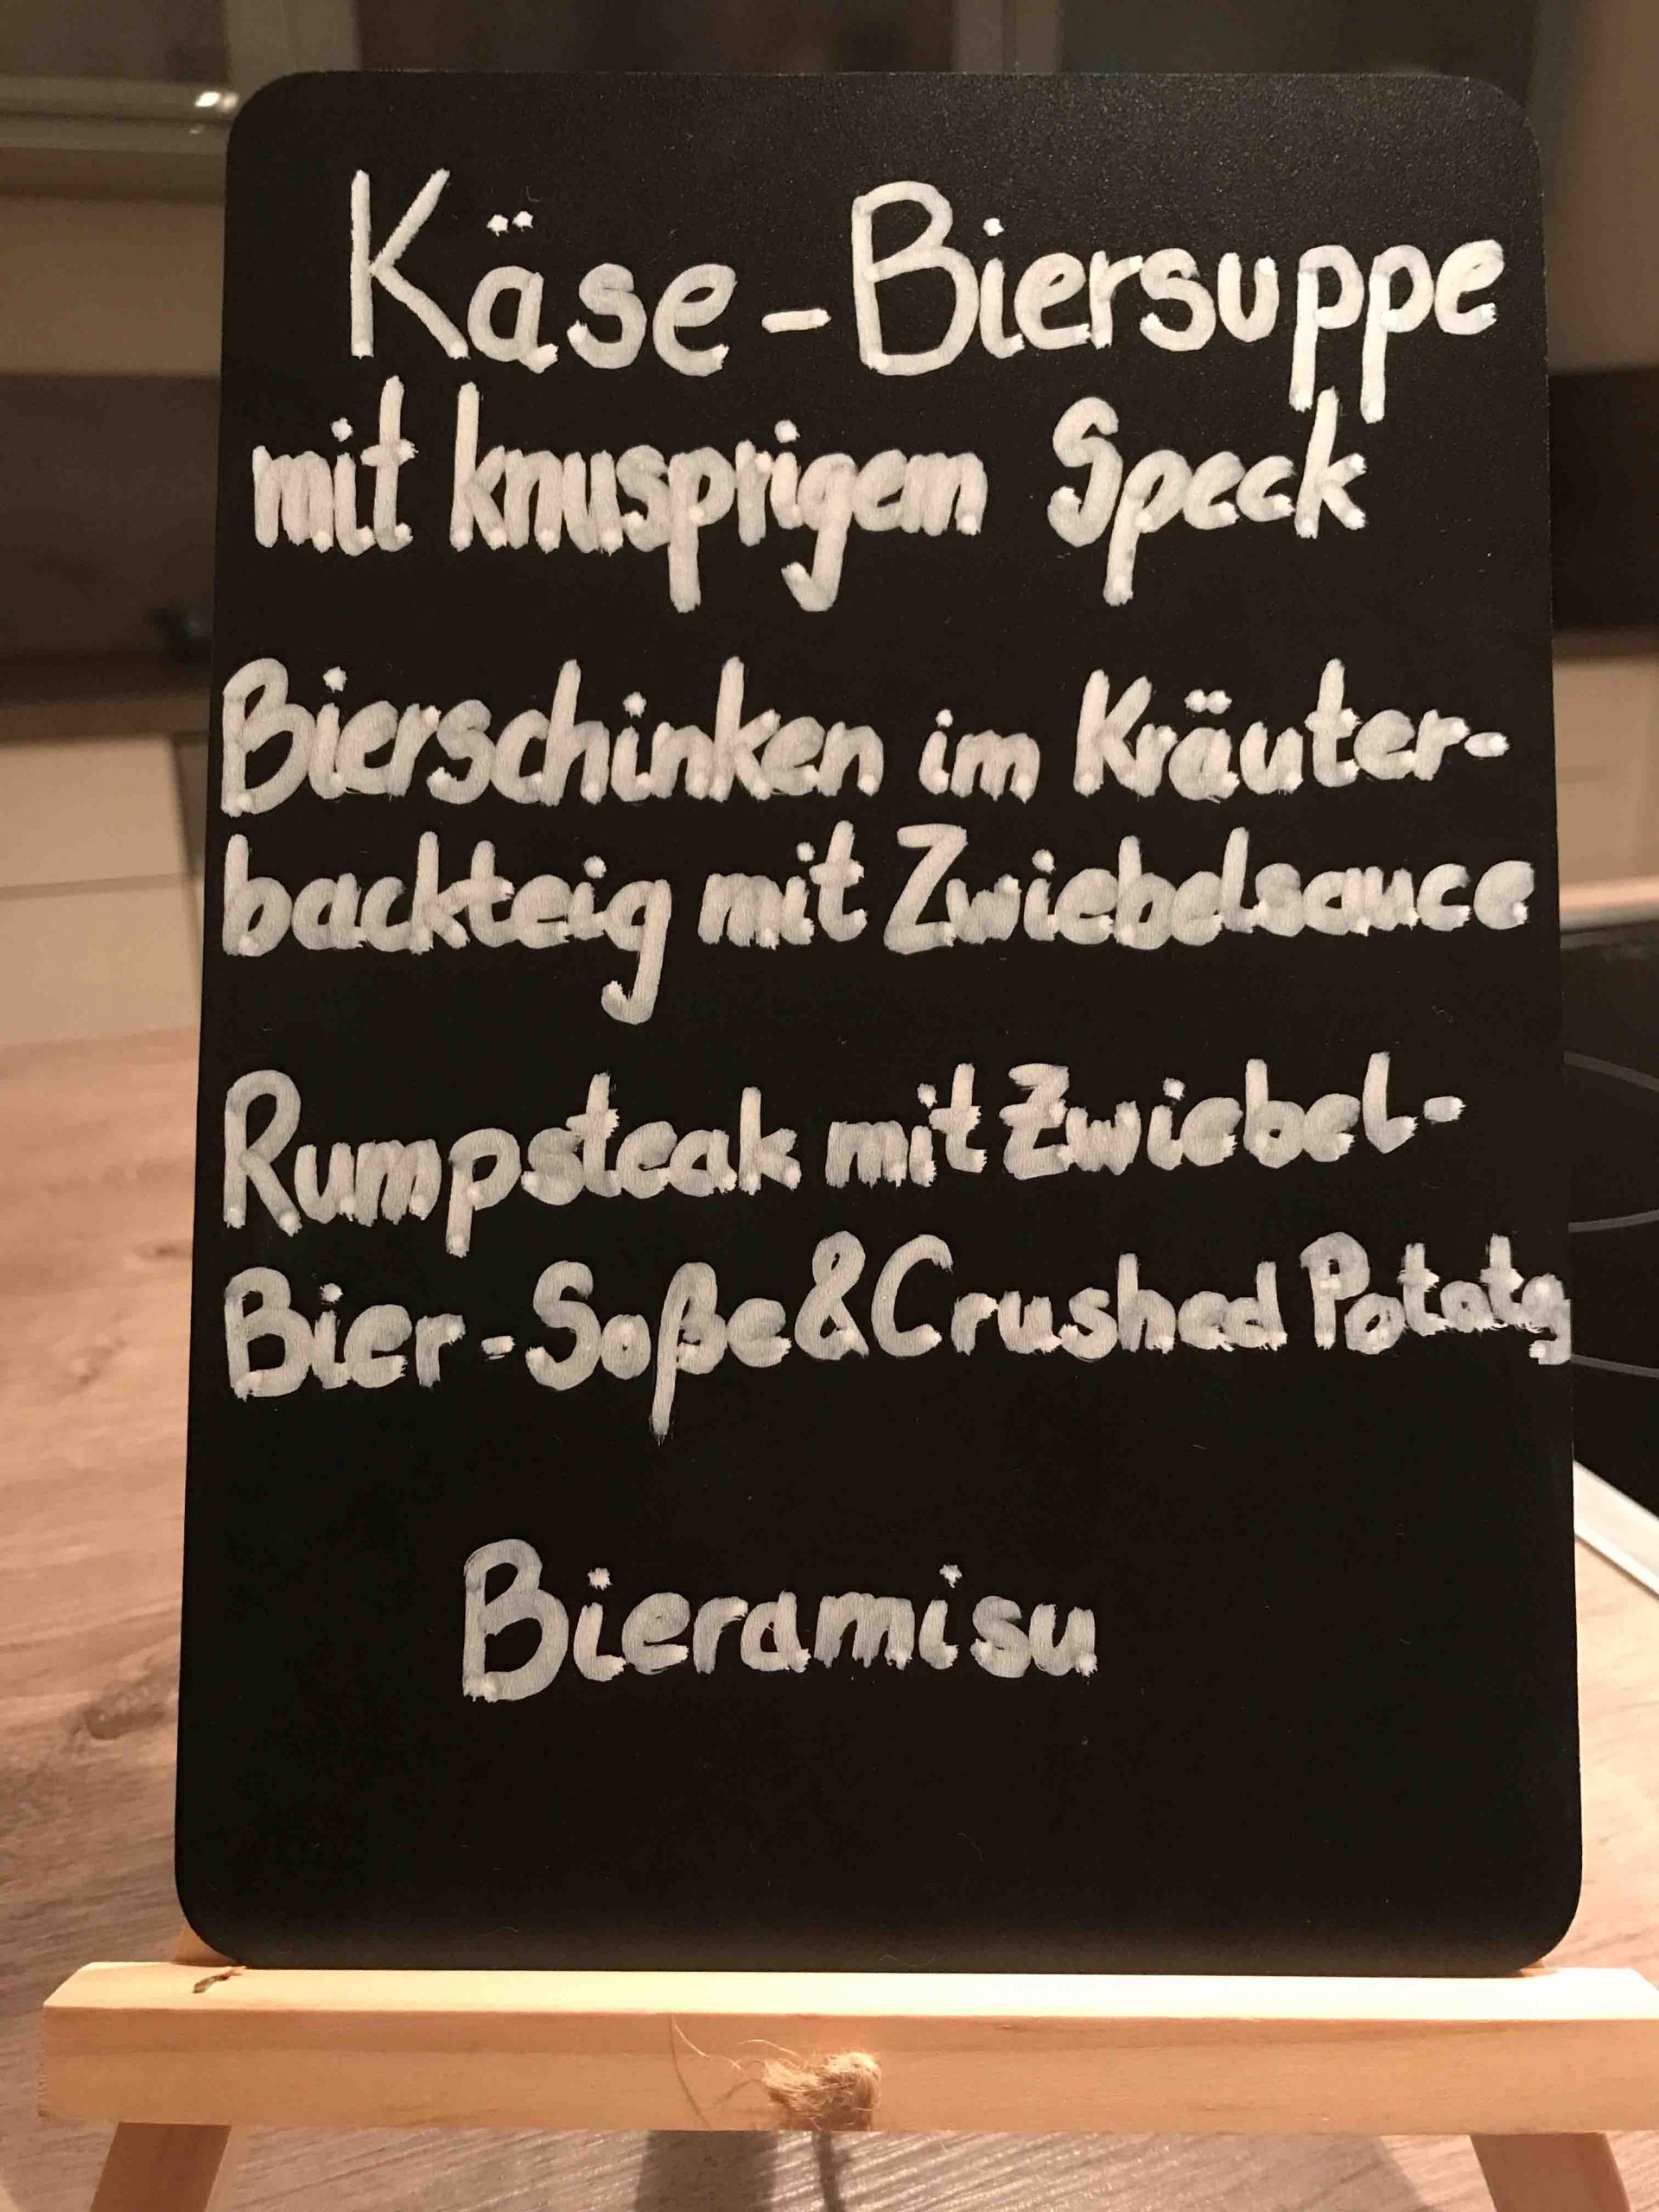 Käse-Biersuppe
mit knusprigem Speck
Bierschinken im Kräuter-
backteig mit Zwiebelsauce
Rumpsteak mit Zwiebel-
Bier-Soße & Crushed Potatos
Bieramisu